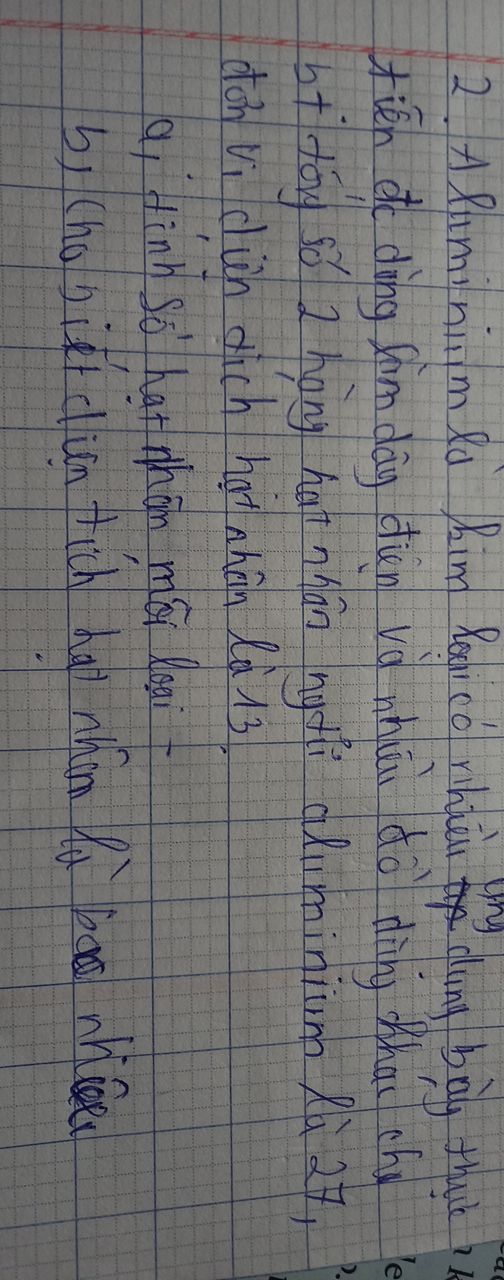 2. Aluminium là kim loại có nhiều ứng dụng
tiễn đc dùng làm dây điện và nhiều đồ dùng khác cho
bt tổng số 2 hạng hạt nhân ngtử aluminium là 27,
đơn vị điện tích hạt nhân là 13
a, tính số hạt nhân mỗi loại -
b, Cho biết điện tích hạt nhân là bao nhiêu